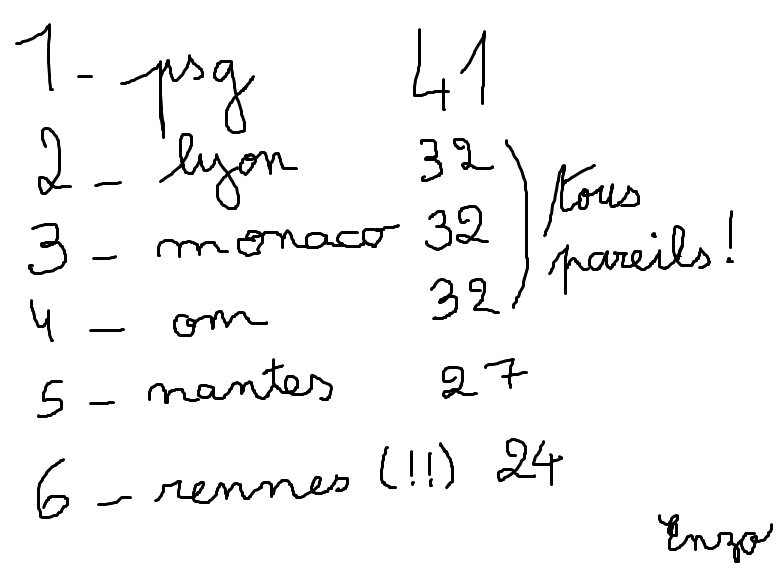 1 - psg 41
2 - lyon 32
3 - monaco 32
tous
pareils !
4 - om 32
5 - nantes 27
6 - rennes (!!) 24
Enzo